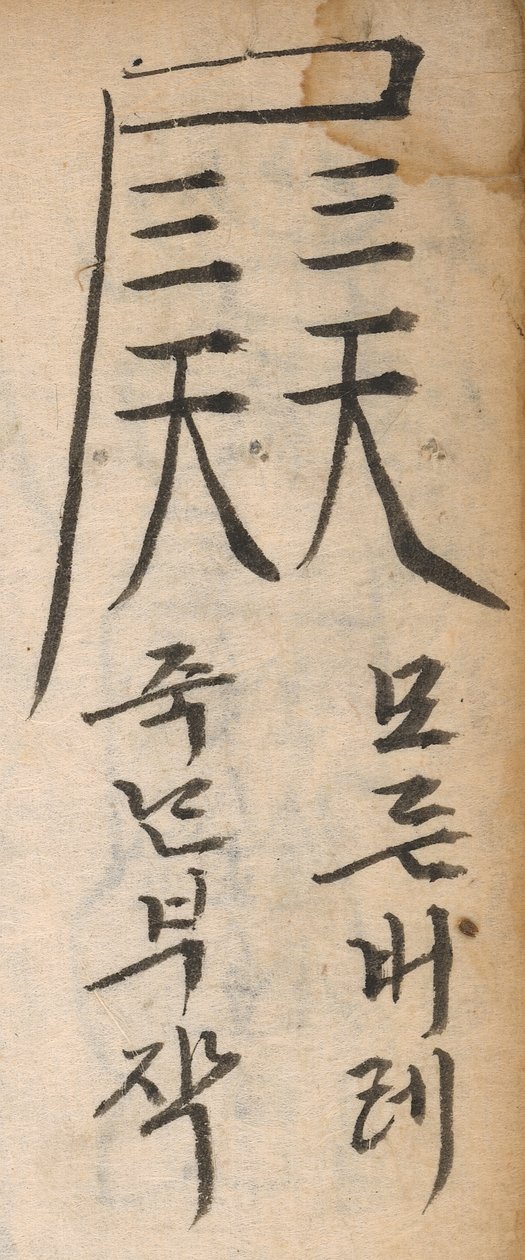 尸
三天
三天
모든버레
죽는부작